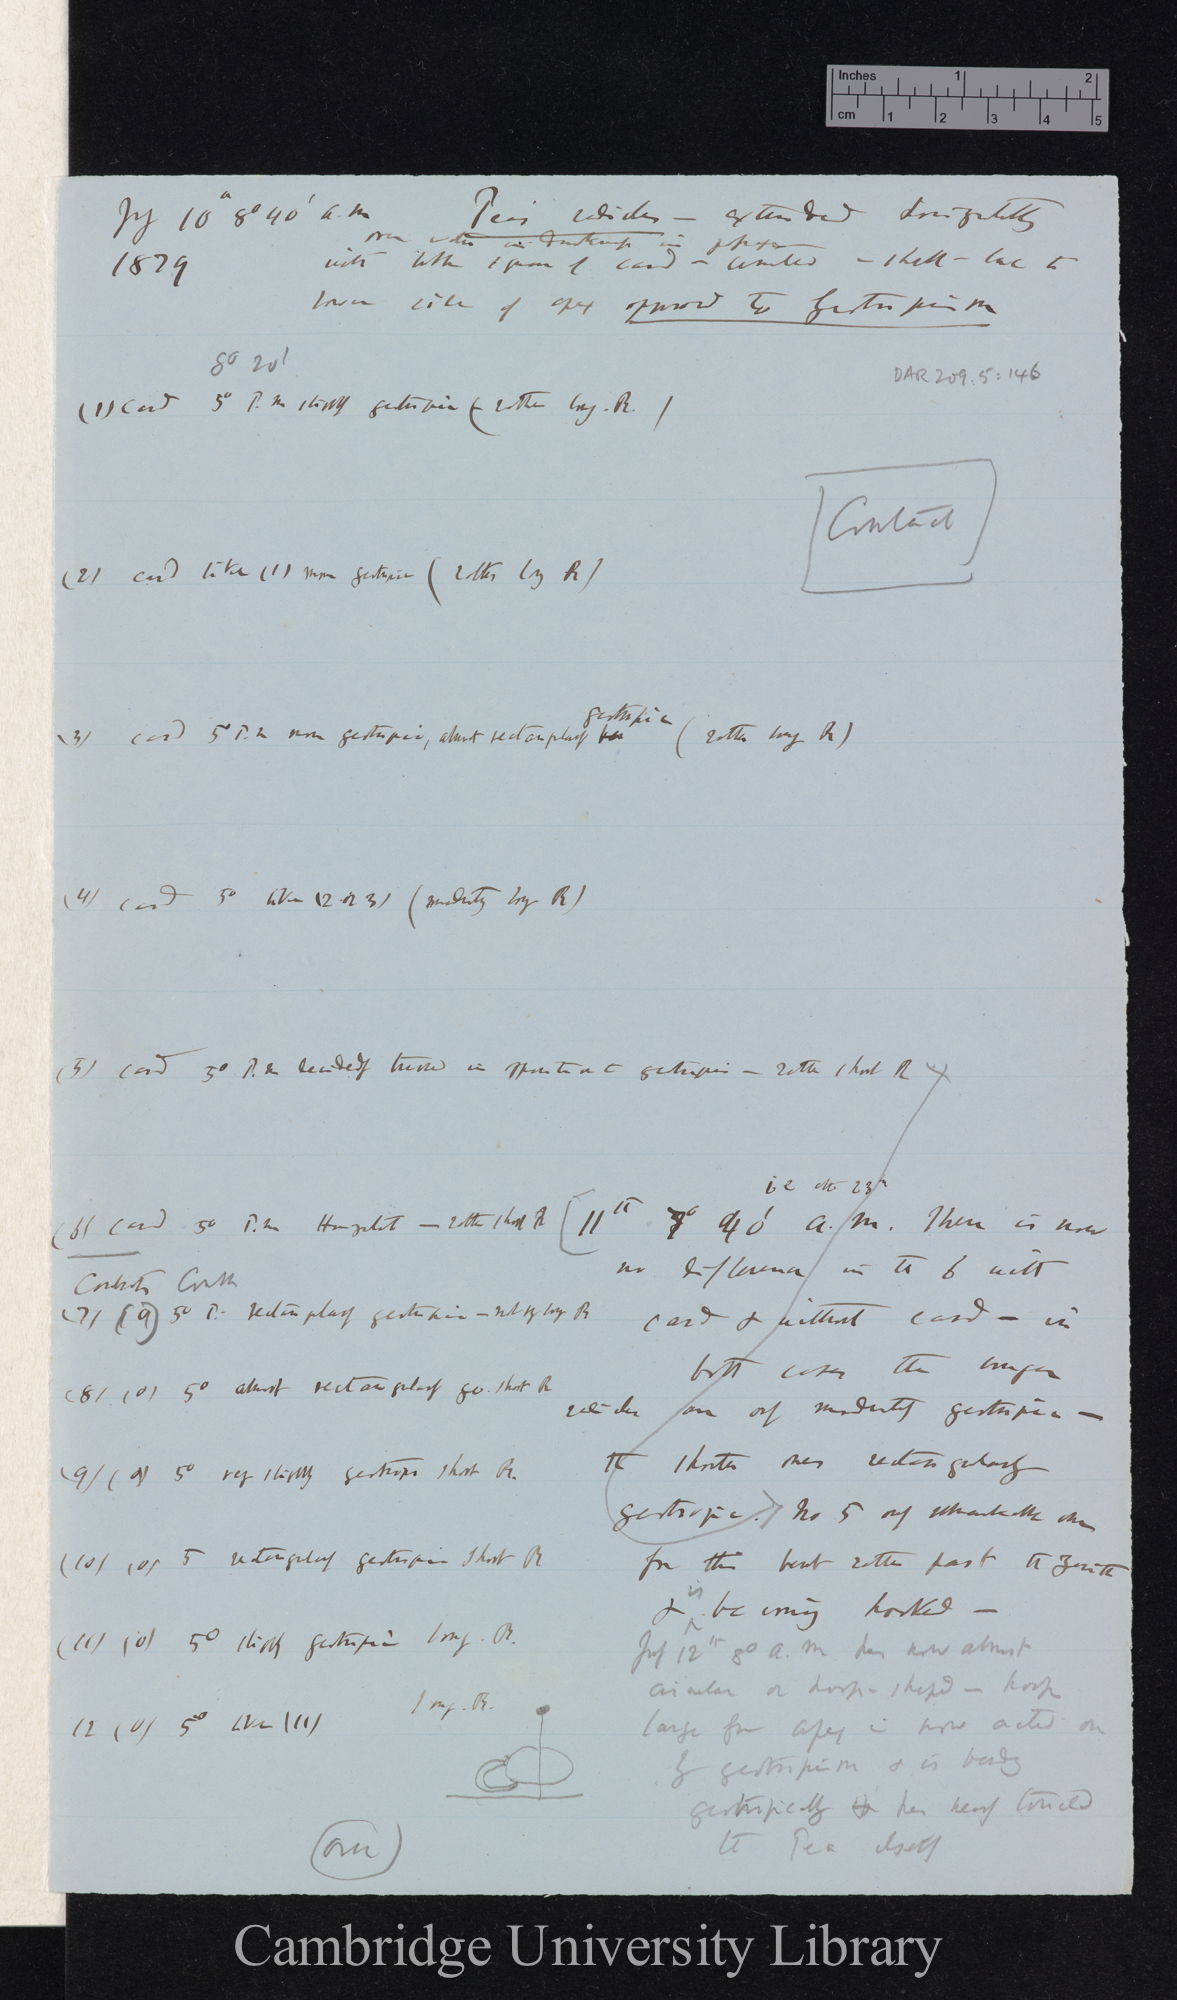 Inches 1 2
cm 1 2 3 4 5
10 8° 40' a.m Pea's radicles — extended horizontally
over water in in
1879 with little square of card — shell-lac to
lower side of apex opposed to Geotropism
8° 20'
DAR 209.5:146
(1) Card 5° P.m slightly geotropic (rather long R.)
Contact
(2) card like (1) more geotropic (rather long R)
geotropic
(3) card 5° P.m more geotropic, almost rectangularly (rather long R)
(4) card 5° like (2 or 3) (moderately long R)
(5) card 5° P.m decidedly turned in opposition to geotropism — rather short R
i.e after 23h
(6) Card 5° P.m Horizontal — rather short R [11th 7° 40' a.m. There is now
no difference in the 6 with
card & without card — in
both cases the longer
radicles are only moderately geotropic —
the shorter ones rectangularly
geotropic.) No 5 only remarkable one
for this bent rather past the Zenith
& is becoming hooked —
(7) (0) 5° P. rectangularly geotropic — long R
(8) (0) 5° almost rectangularly geo. short R
(9) (0) 5° very slightly geotropic short R.
(10) (0) 5 rectangularly geotropic short R
(11) (0) 5° slightly geotropic long. R.
12 (0) 5° like (11) long. R.
12th 8° a.m has now almost
circular or hoop-shaped — hoop
large for apex is now acted on
by geotropism & is bending
geotropically has nearly touched
the Pea itself
(over)
Cambridge University Library